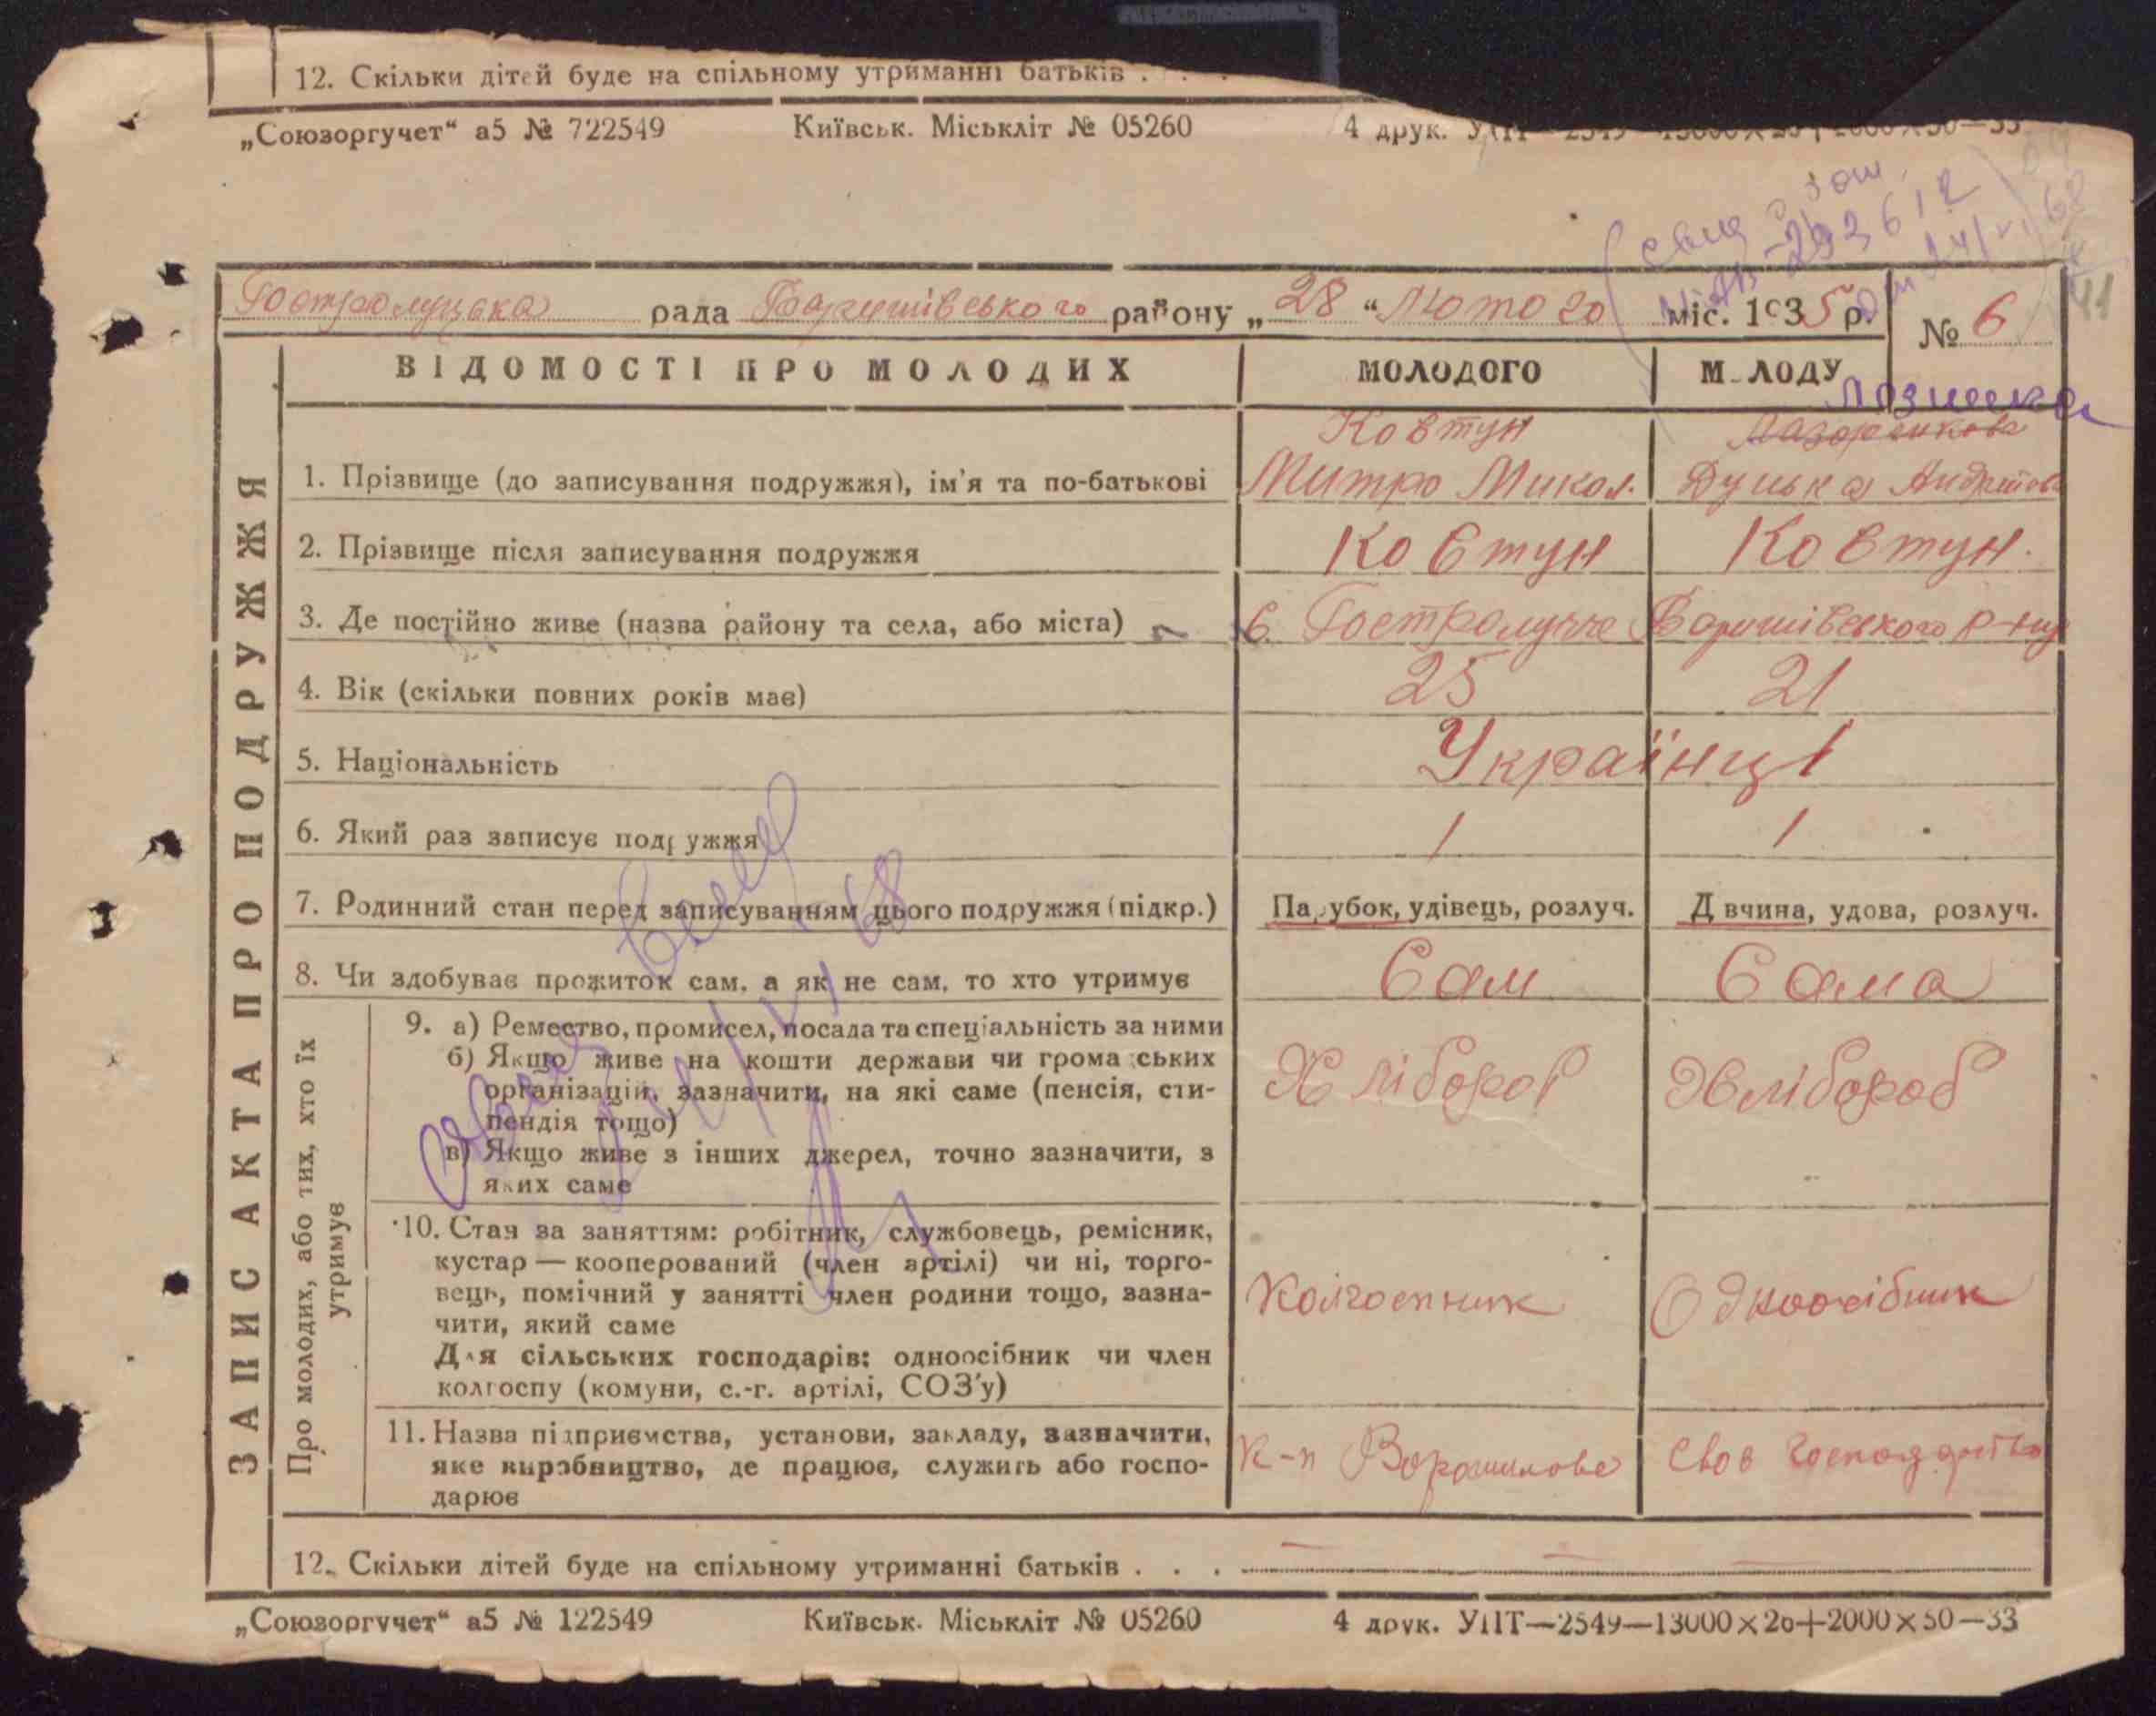 12. Скільки дітей буде на спільному утриманні батьків . . .
„Союзоргучет“ а5 № 722549 Київськ. Міськліт № 05260 4 друк.
Гостролуцька рада Баришівського району „28“ Лютого міс. 1935 р. № 6
ВІДОМОСТІ ПРО МОЛОДИХ МОЛОДОГО М ЛОДУ
Лозицька
Ковтун
1. Прізвище (до записування подружжя), ім'я та по-батькові Митро Микол. Дунька Андріївна
2. Прізвище після записування подружжя Ковтун Ковтун.
3. Де постійно живе (назва району та села, або міста) с. Гостролуччє Баришівського р-ну
4. Вік (скільки повних років має) 25 21
5. Національність Українці
6. Який раз записує подружжя 1 1
7. Родинний стан перед записуванням цього подружжя (підкр.) Парубок, удівець, розлуч. Д вчина, удова, розлуч.
8. Чи здобуває прожиток сам, а як не сам, то хто утримує Сам Сама
ЗАПИС АКТА ПРО ПОДРУЖЖЯ
Про молодих, або тих, хто їх утримує
9. а) Ремество, промисел, посада та спеціальність за ними
б) Якщо живе на кошти держави чи грома ських
організацій, зазначити, на які саме (пенсія, сти-
пендія тощо)
в) Якщо живе з інших джерел, точно зазначити, з
яких саме
Хлібороб Хлібороб
10. Стан за заняттям: робітник, службовець, ремісник,
кустар — кооперований (член артілі) чи ні, торго-
вець, помічний у занятті член родини тощо, зазна-
чити, який саме
Для сільських господарів: одноосібник чи член
колгоспу (комуни, с.-г. артілі, СОЗ'у)
Колгоспник Одноосібник
11. Назва підприємства, установи, закладу, зазначити,
яке виробництво, де працює, служить або госпо-
дарює
к-п Ворошилова Своє господарство
12. Скільки дітей буде на спільному утриманні батьків . . .
„Союзоргучет“ а5 № 122549 Київськ. Міськліт № 05260 4 друк. УПТ—2549—13000×20+2000×50—33